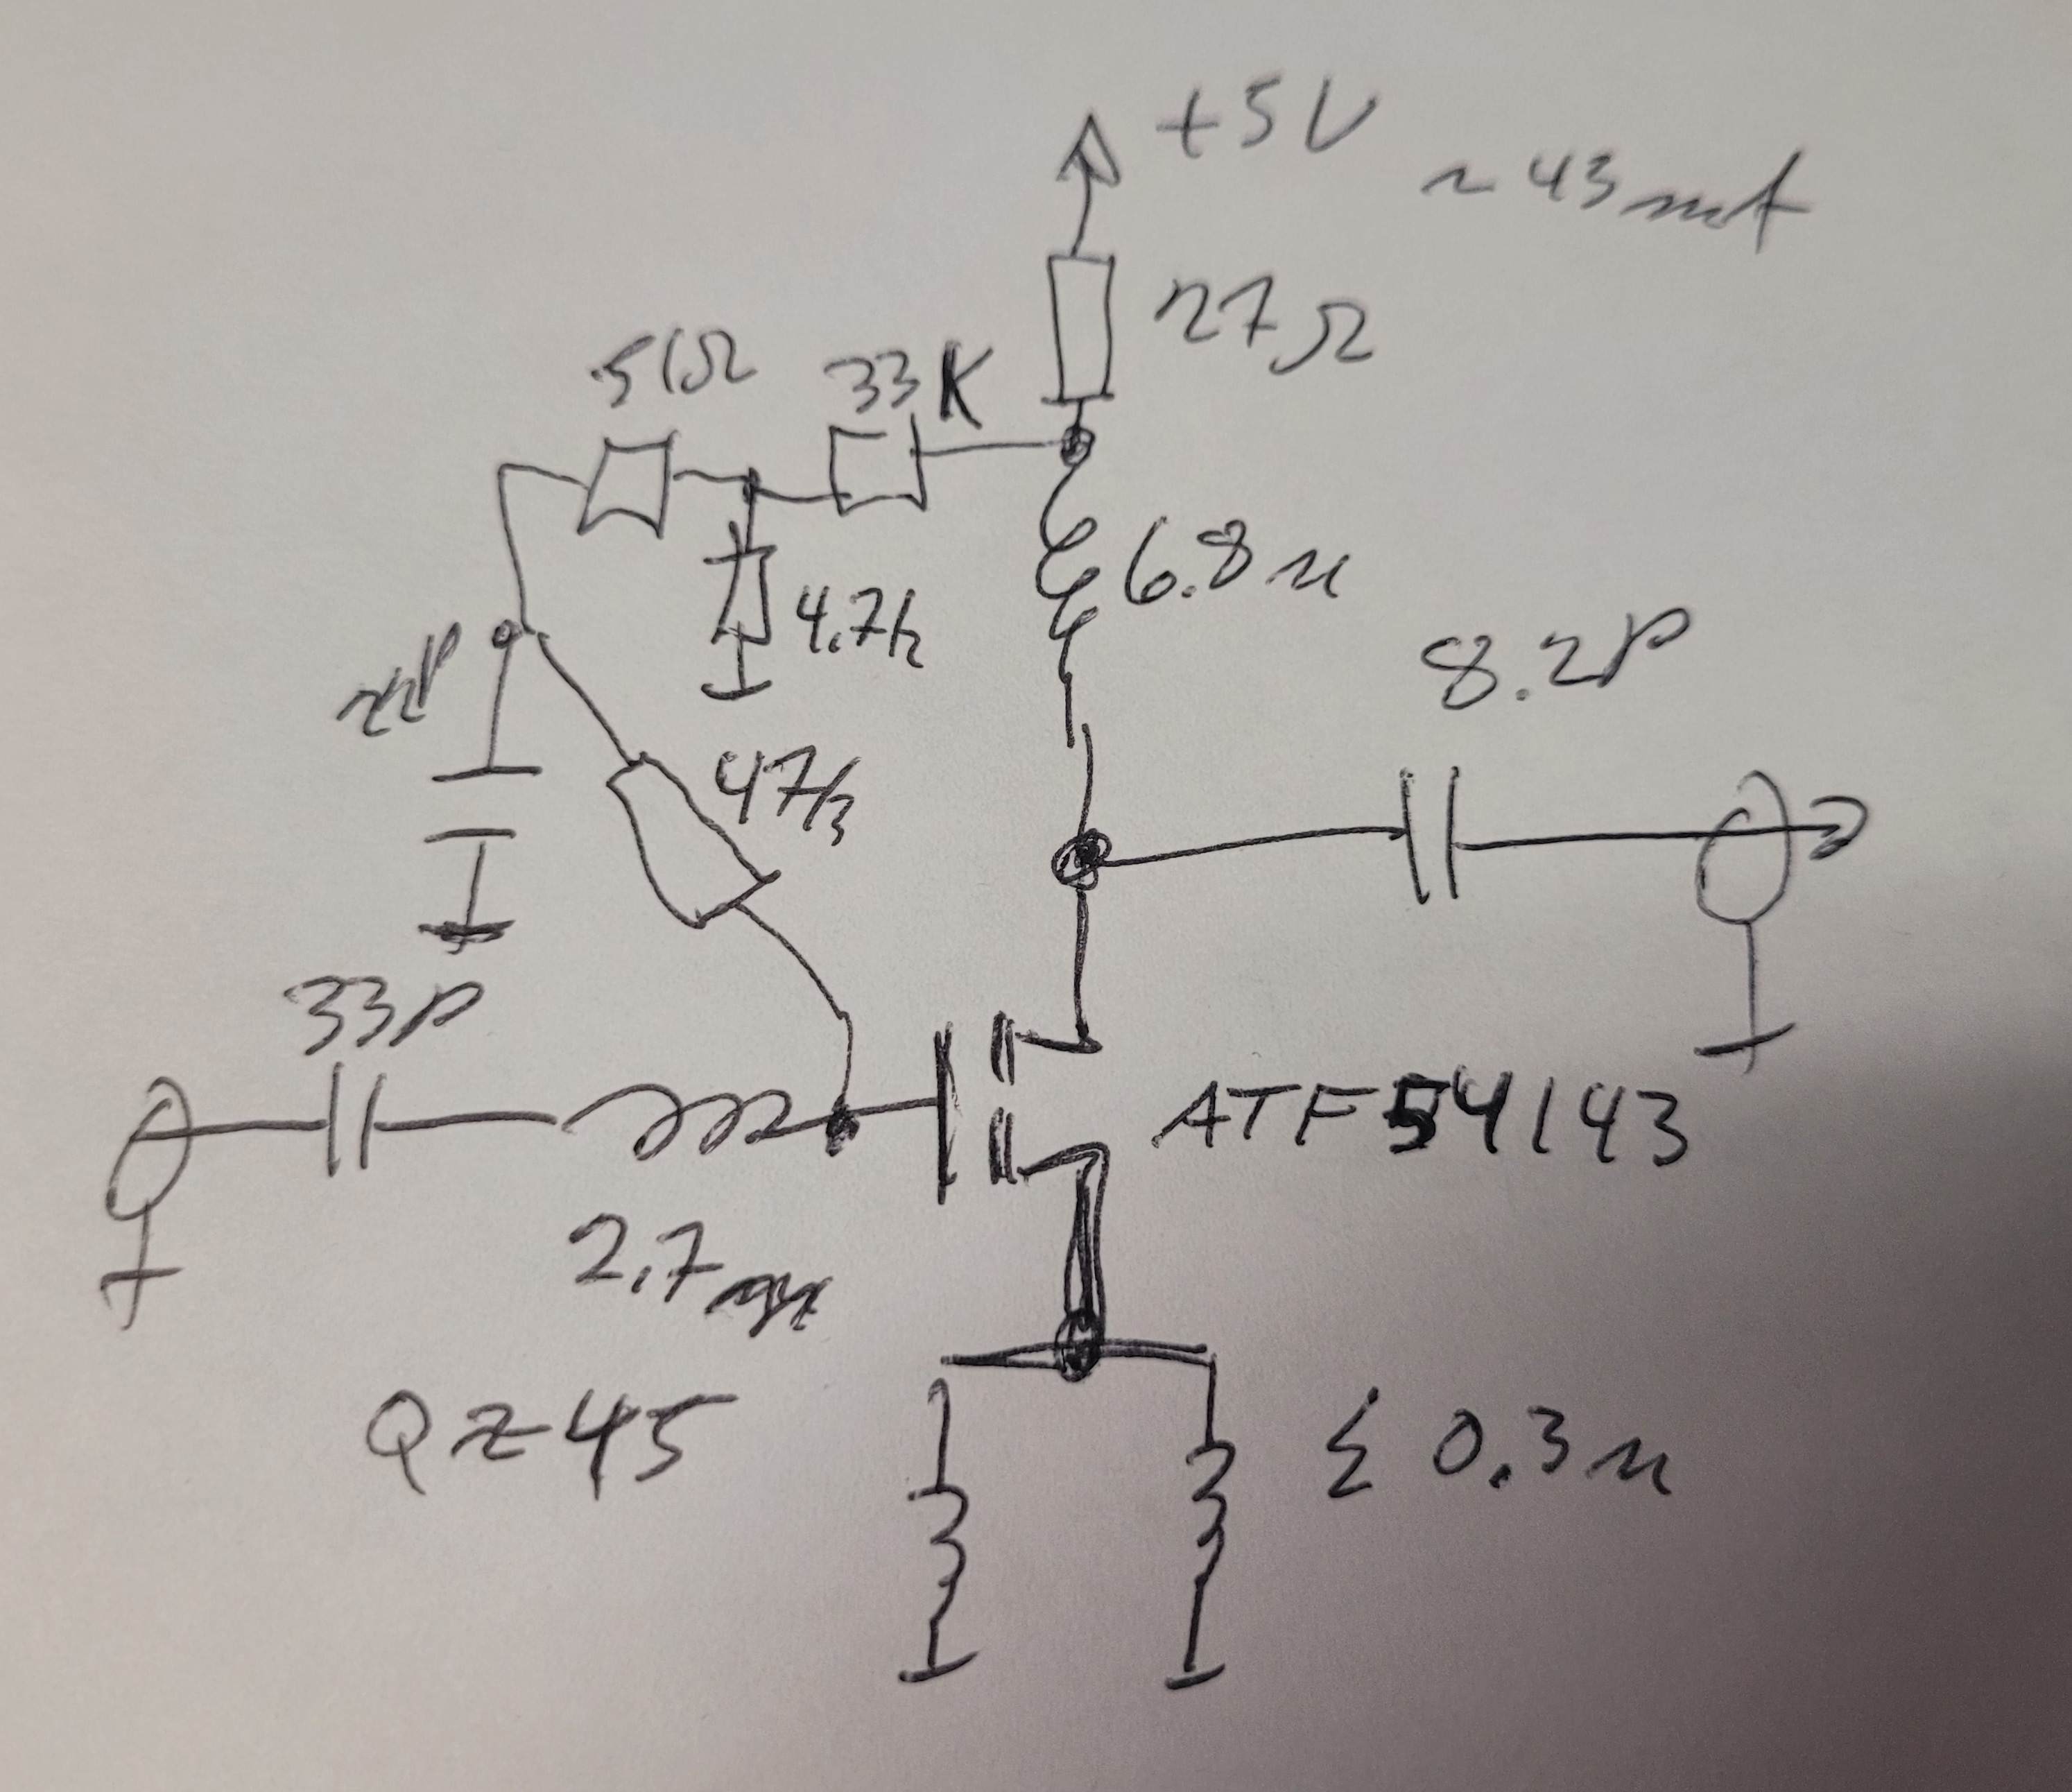 +5V
~43mA
27Ω
51Ω
33K
6.8n
4.7k
22P
8.2P
47k
33p
ATF54143
2.7
Q≈45
Σ 0.3n